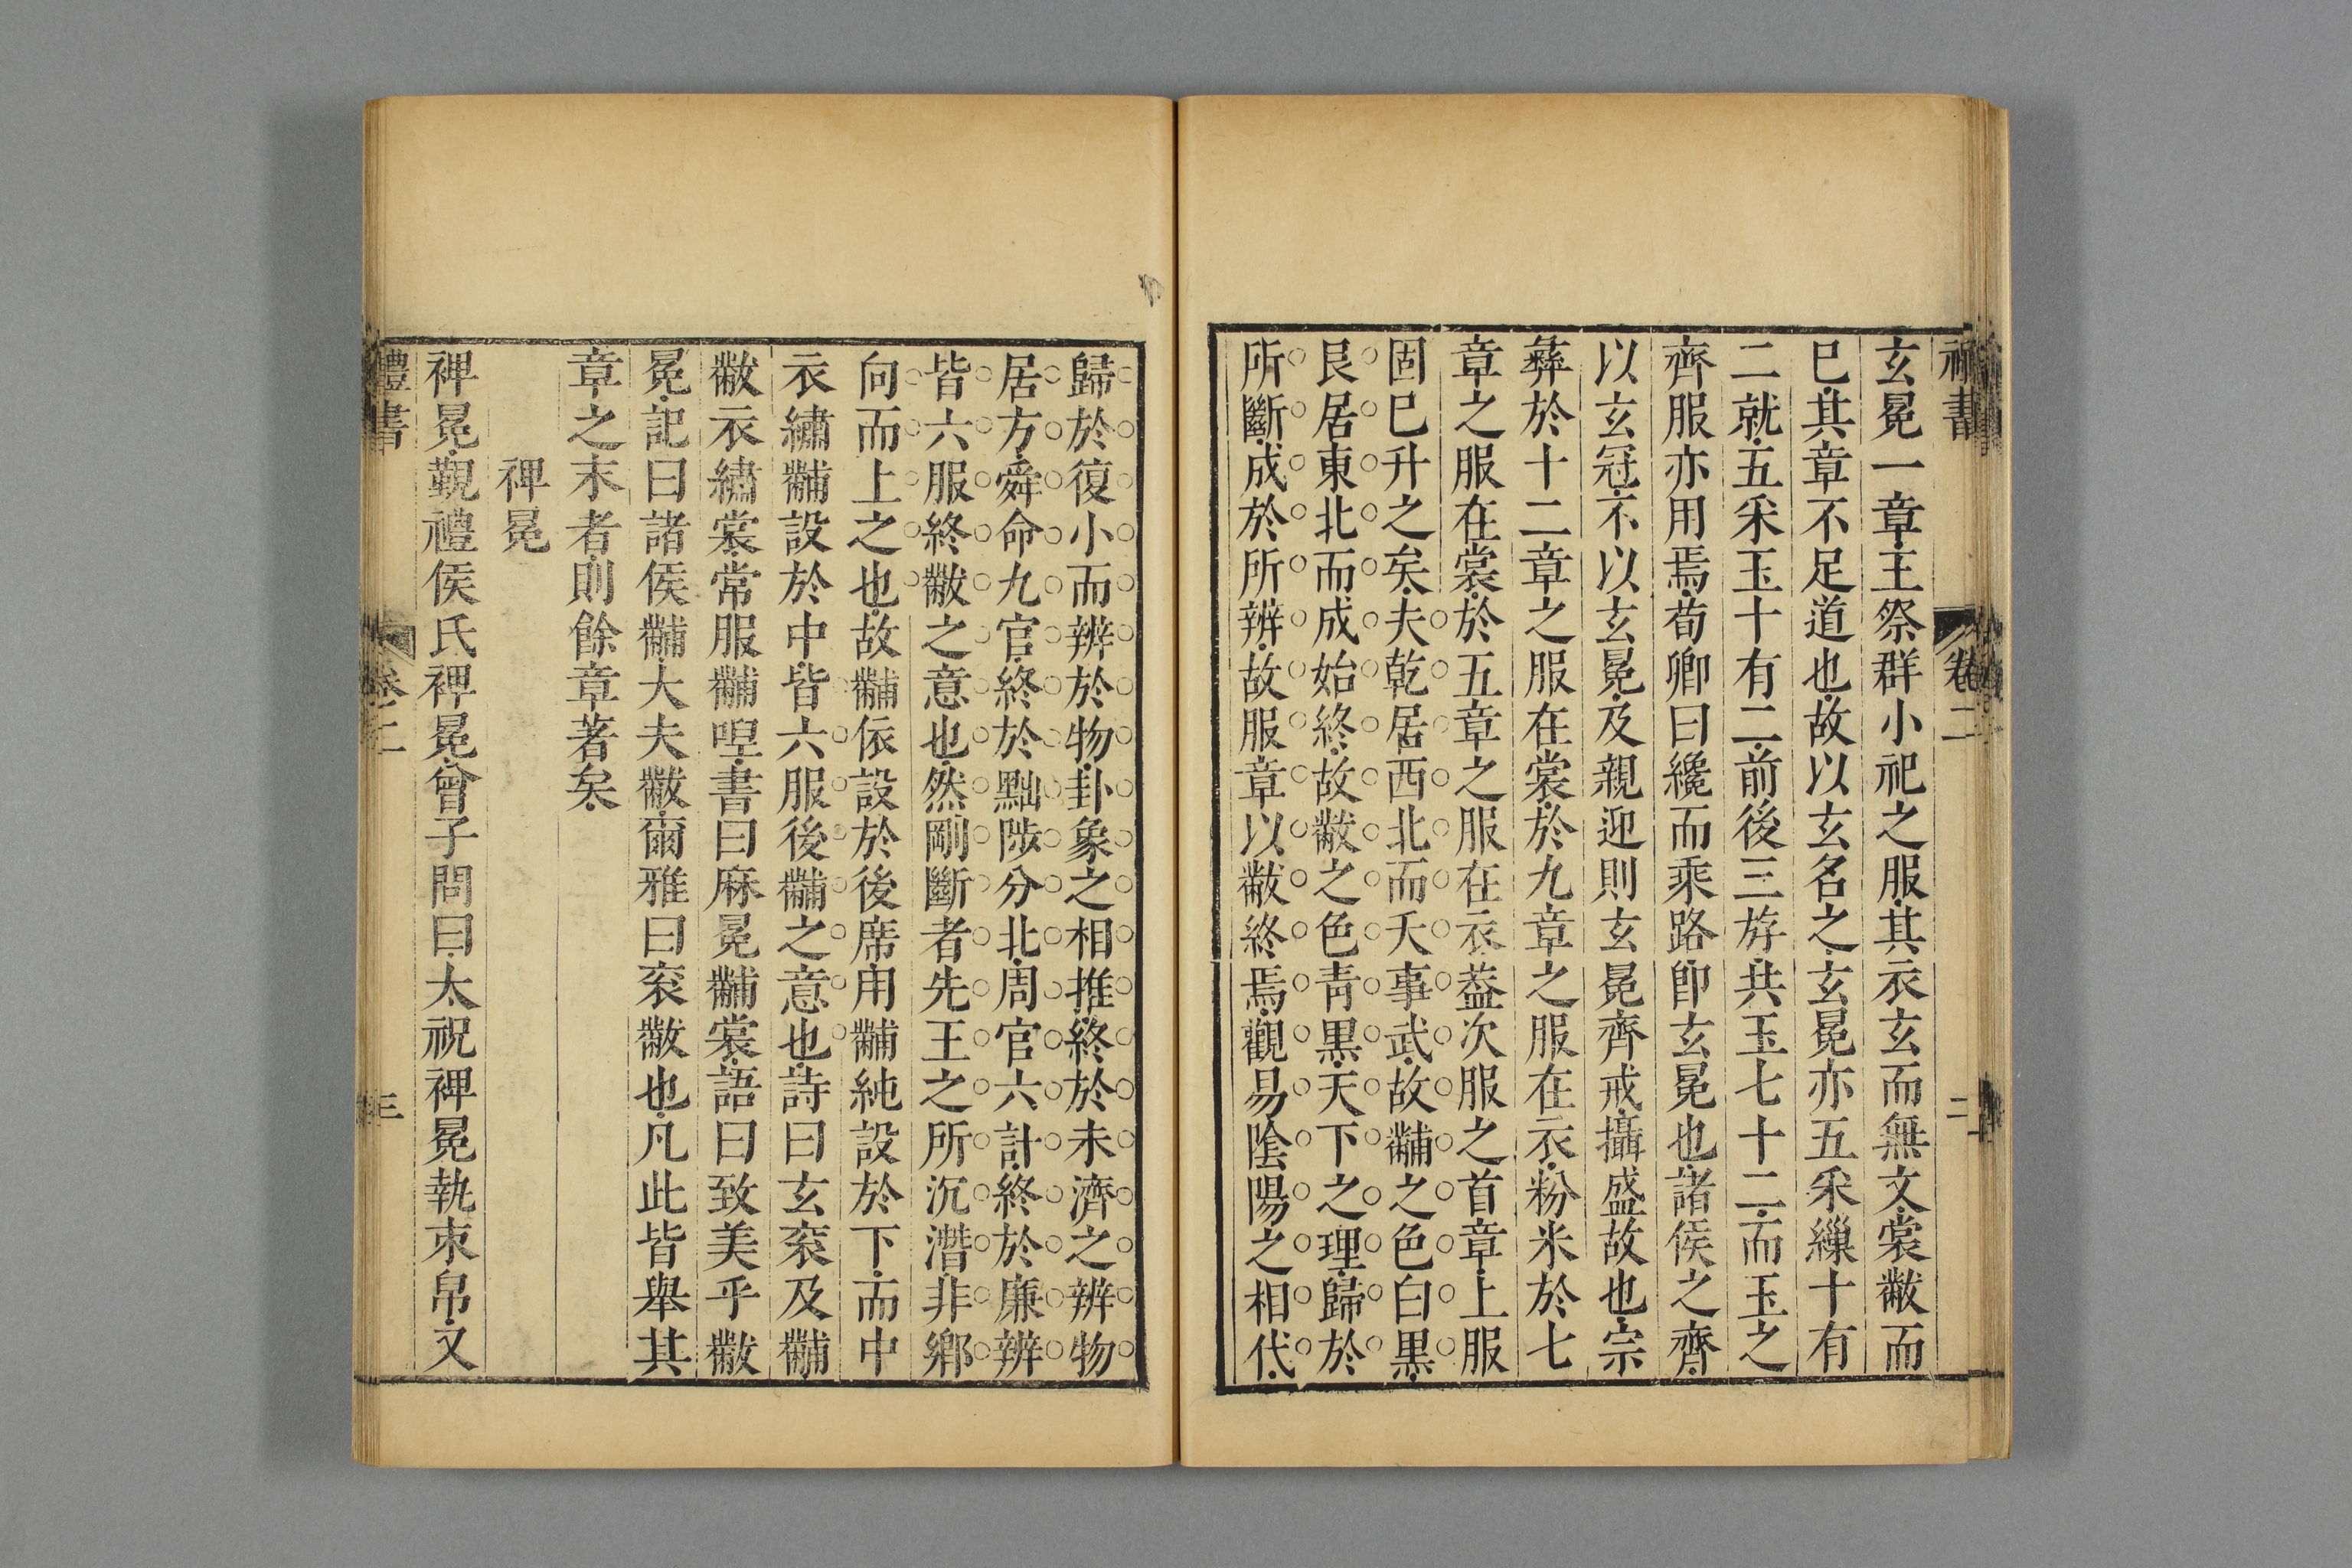 禮書
卷二
二
玄冕一章王祭群小祀之服其衣玄而無文裳黻而
已其章不足道也故以玄名之玄冕亦五采繅十有
二就五采玉十有二前後三斿共玉七十二而玉之
齊服亦用焉荀卿曰纔而乘路卽玄冕也諸侯之齊
以玄冠不以玄冕及親迎則玄冕齊戒攝盛故也宗
彝於十二章之服在裳於九章之服在衣粉米於七
章之服在裳於五章之服在衣葢次服之首章上服
固巳升之矣夫乾居西北而天事武故黼之色白黒
艮居東北而成始終故黻之色靑黒天下之理歸於
所斷成於所辨故服章以黻終焉觀易陰陽之相代
歸於復小而辨於物卦象之相推終於未濟之辨物
居方舜命九官終於黜陟分北周官六計終於廉辨
皆六服終黻之意也然剛斷者先王之所沉濳非鄕
向而上之也故黼依設於後席用黼純設於下而中
衣繡黼設於中皆六服後黼之意也詩曰玄衮及黼
黻衣繡裳常服黼哻書曰麻冕黼裳語曰致美乎黻
冕記曰諸侯黼大夫黻爾雅曰衮黻也凡此皆舉其
章之末者則餘章著矣
裨冕
裨冕覲禮侯氏裨冕曾子問曰太祝裨冕執束帛又
禮書
卷之二
三